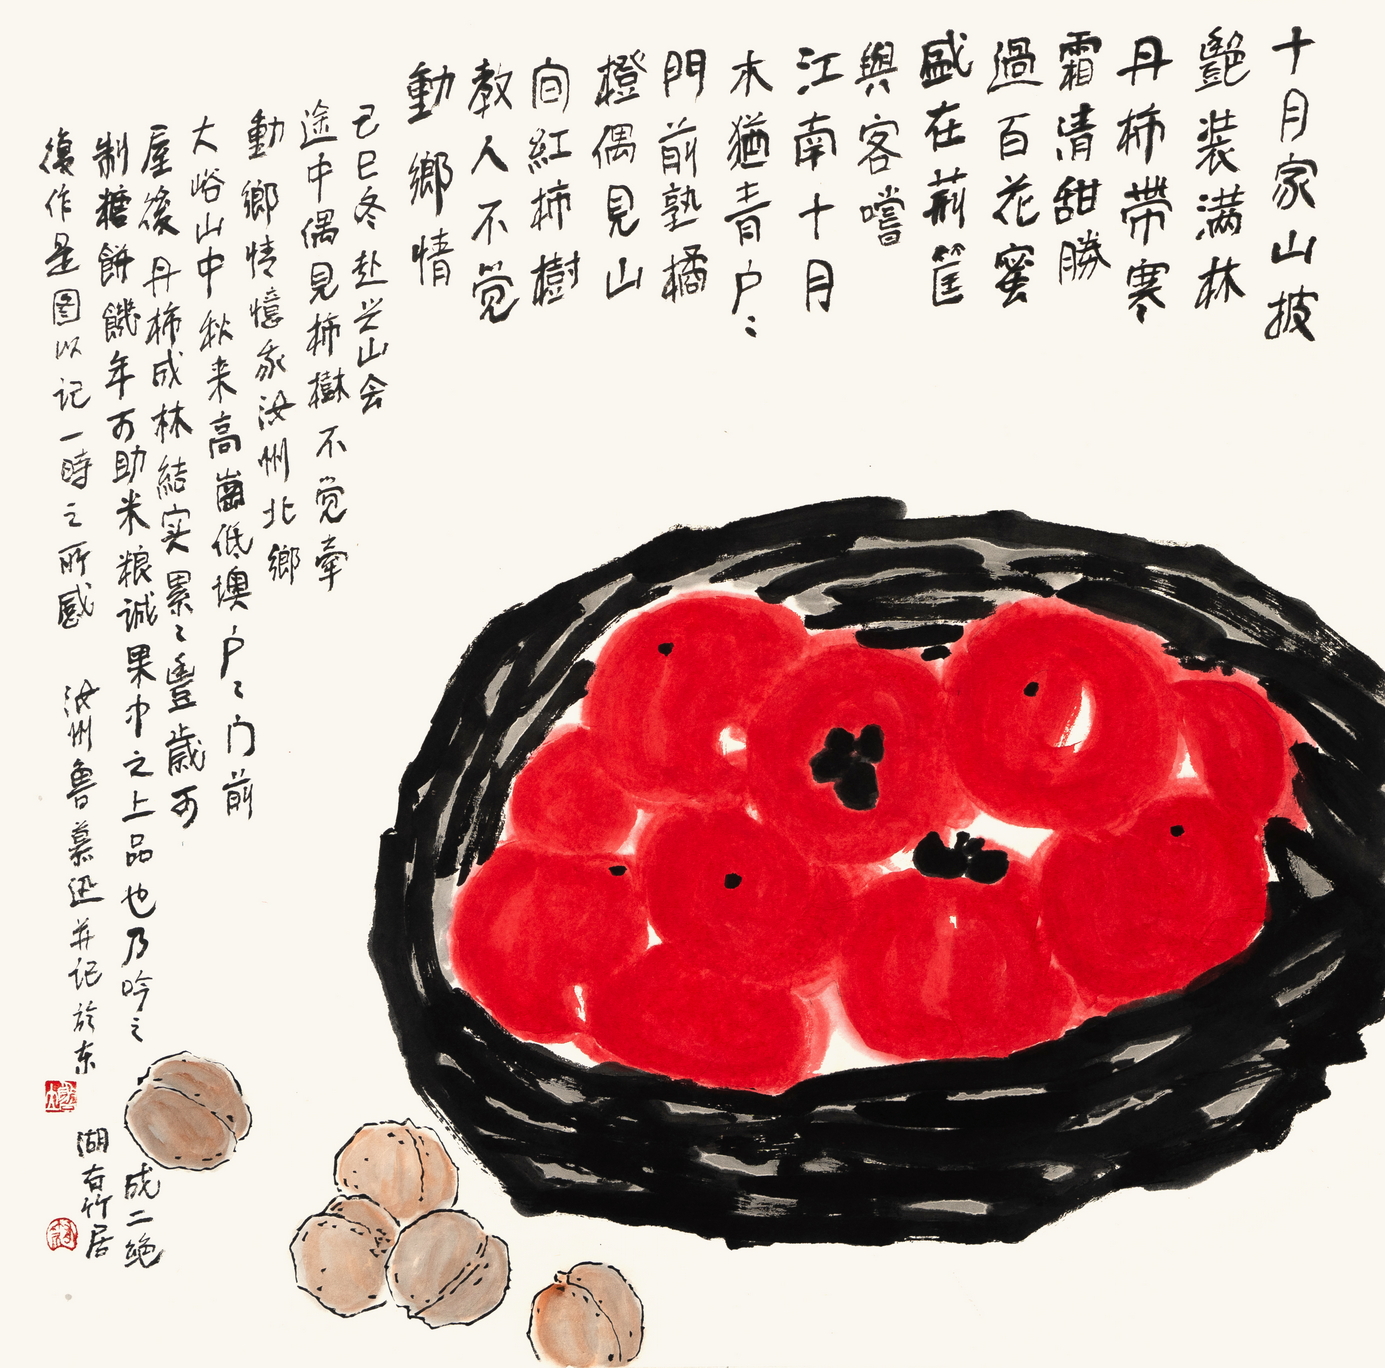 十月家山披
艷装满林
丹柿帶寒
霜清甜勝
過百花蜜
盛在荊筐
與客嚐
江南十月
木猶青户〻
門前熟橘
橙偶見山
间紅柿樹
教人不觉
動鄉情
己巳冬赴兴山会
途中偶見柿樹不觉牽
動鄉情憶我汝州北鄉
大峪山中秋来高崗低墺户〻门前
屋後丹柿成林結实累〻豐歲可
制糖餅饑年可助米粮诚果中之上品也乃吟之成二绝
復作是图以记一時之所感
汝州魯慕迅并记於东湖有竹居